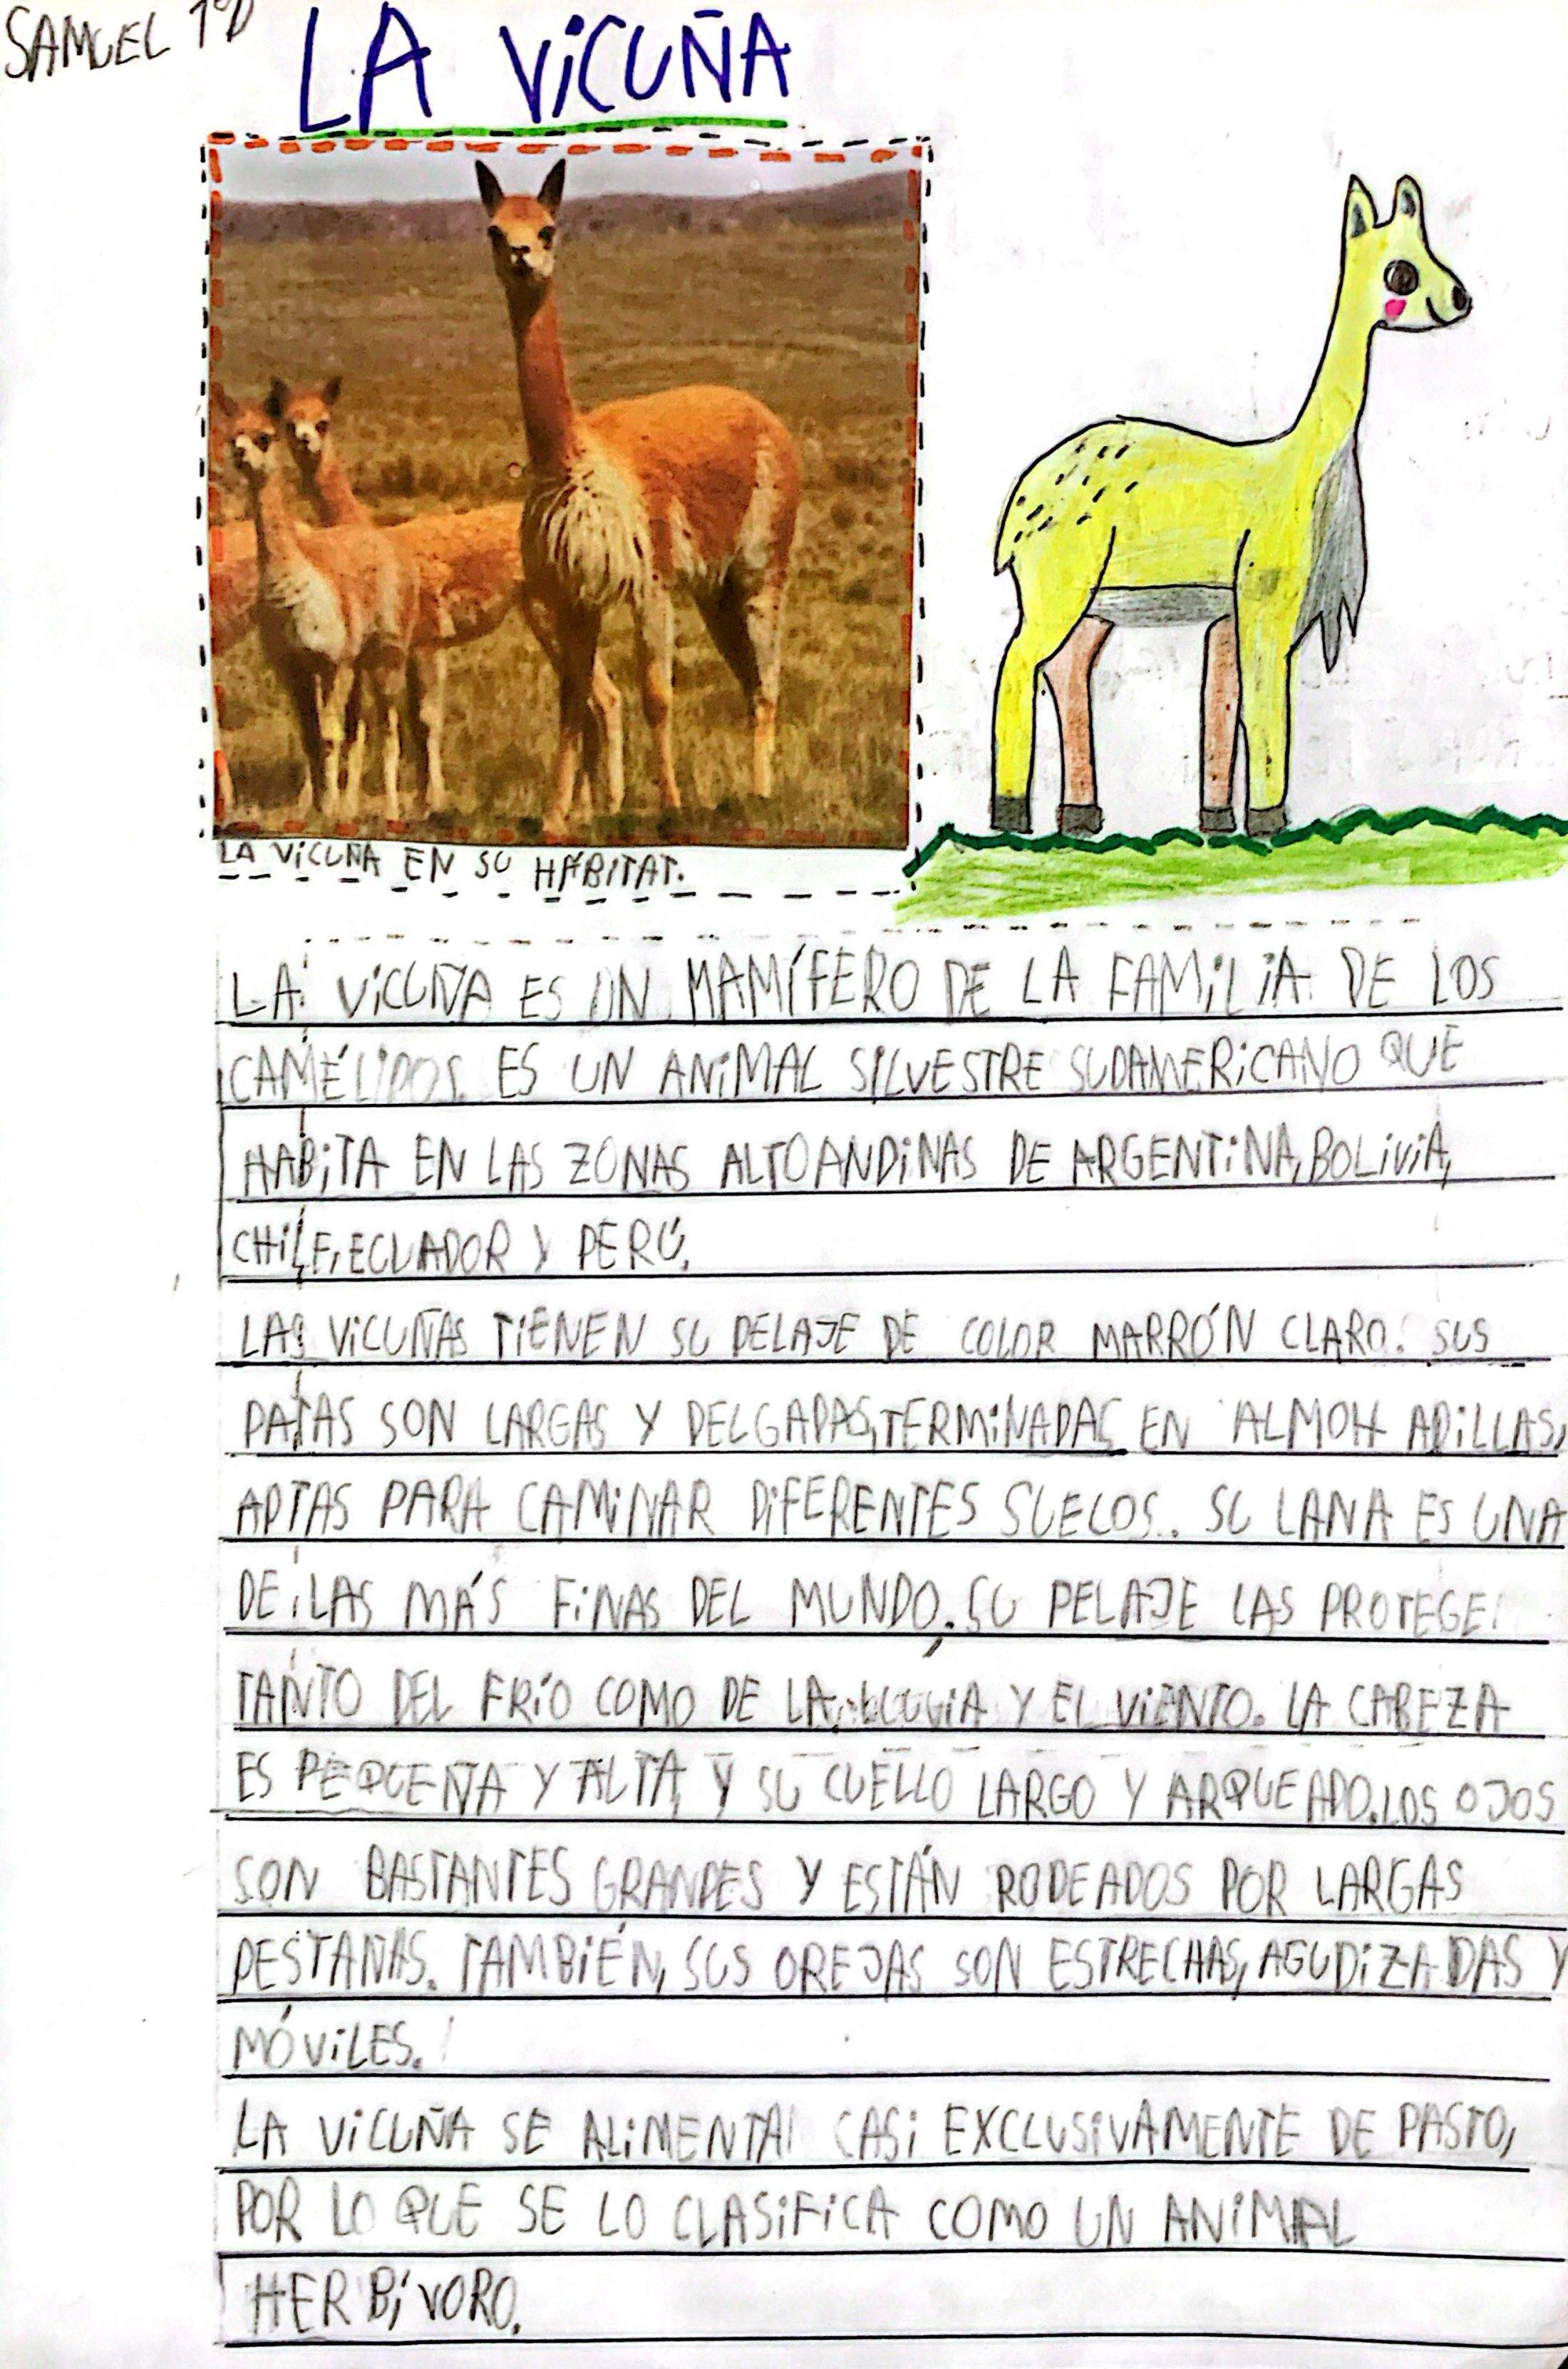 SAMUEL 1°D
LA VICUÑA
LA VICUÑA EN SU HÁBITAT.
LA VICUÑA ES UN MAMÍFERO DE LA FAMILIA DE LOS
CAMÉLIDOS. ES UN ANIMAL SILVESTRE SUDAMERICANO QUE
HABITA EN LAS ZONAS ALTOANDINAS DE ARGENTINA, BOLIVIA,
CHILE, ECUADOR Y PERÚ.
LAS VICUÑAS TIENEN SU PELAJE DE COLOR MARRÓN CLARO. SUS
PATAS SON LARGAS Y DELGADAS, TERMINADAS EN ALMOHADILLAS,
APTAS PARA CAMINAR DIFERENTES SUELOS.. SU LANA ES UNA
DE LAS MÁS FINAS DEL MUNDO. SU PELAJE LAS PROTEGE
TANTO DEL FRÍO COMO DE LA LLUVIA Y EL VIENTO. LA CABEZA
ES PEQUEÑA Y ALTA, Y SU CUELLO LARGO Y ARQUEADO. LOS OJOS
SON BASTANTES GRANDES Y ESTÁN RODEADOS POR LARGAS
PESTAÑAS. TAMBIÉN, SUS OREJAS SON ESTRECHAS, AGUDIZADAS Y
MÓVILES.
LA VICUÑA SE ALIMENTA CASI EXCLUSIVAMENTE DE PASTO,
POR LO QUE SE LO CLASIFICA COMO UN ANIMAL
HERBÍVORO.